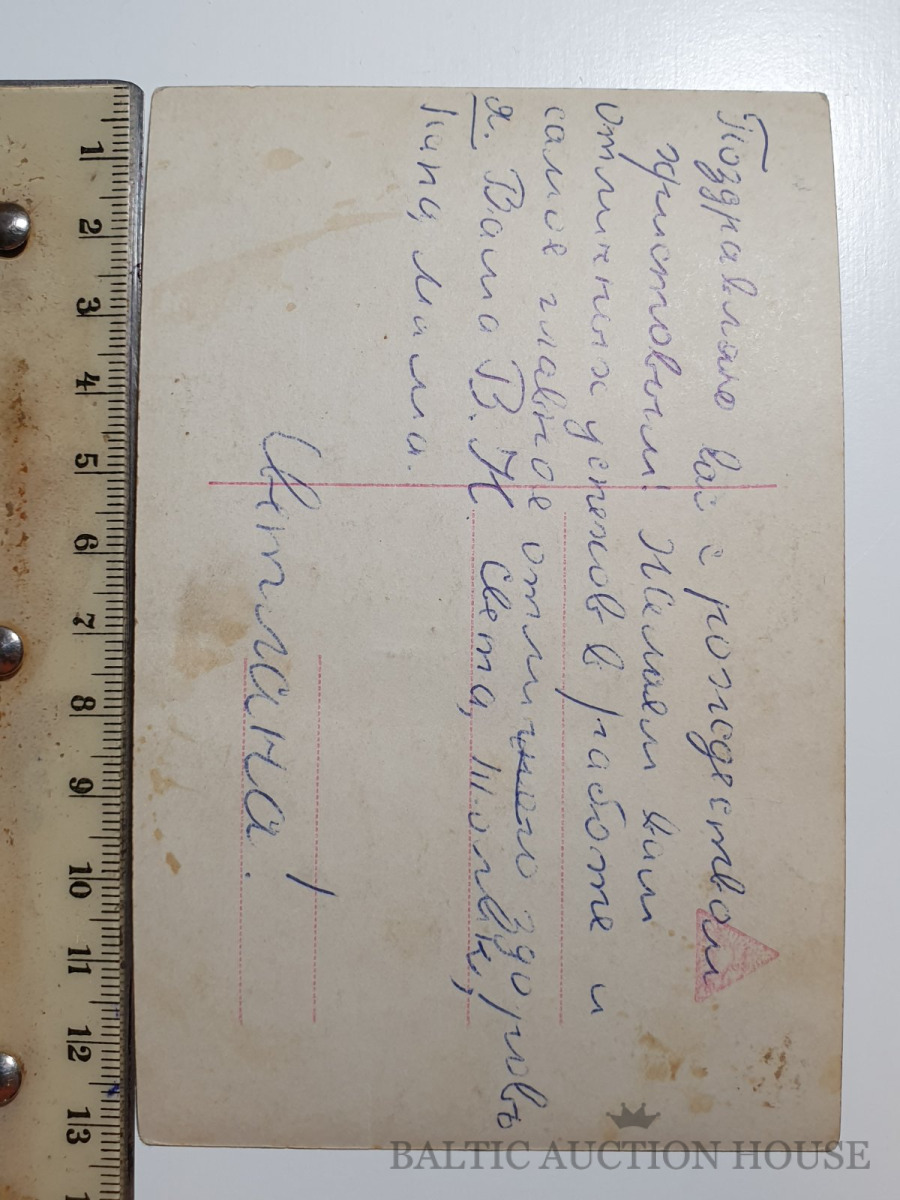 Поздравляю вас с рождеством
христовым! Желаем вам
отличных успехов в работе и
самое главное отличного здоровь
я. Ваша В. Н. Света, Толик,
папа, мама.
Цетлана!
1 2 3 4 5 6 7 8 9 10 11 12 13
BALTIC AUCTION HOUSE